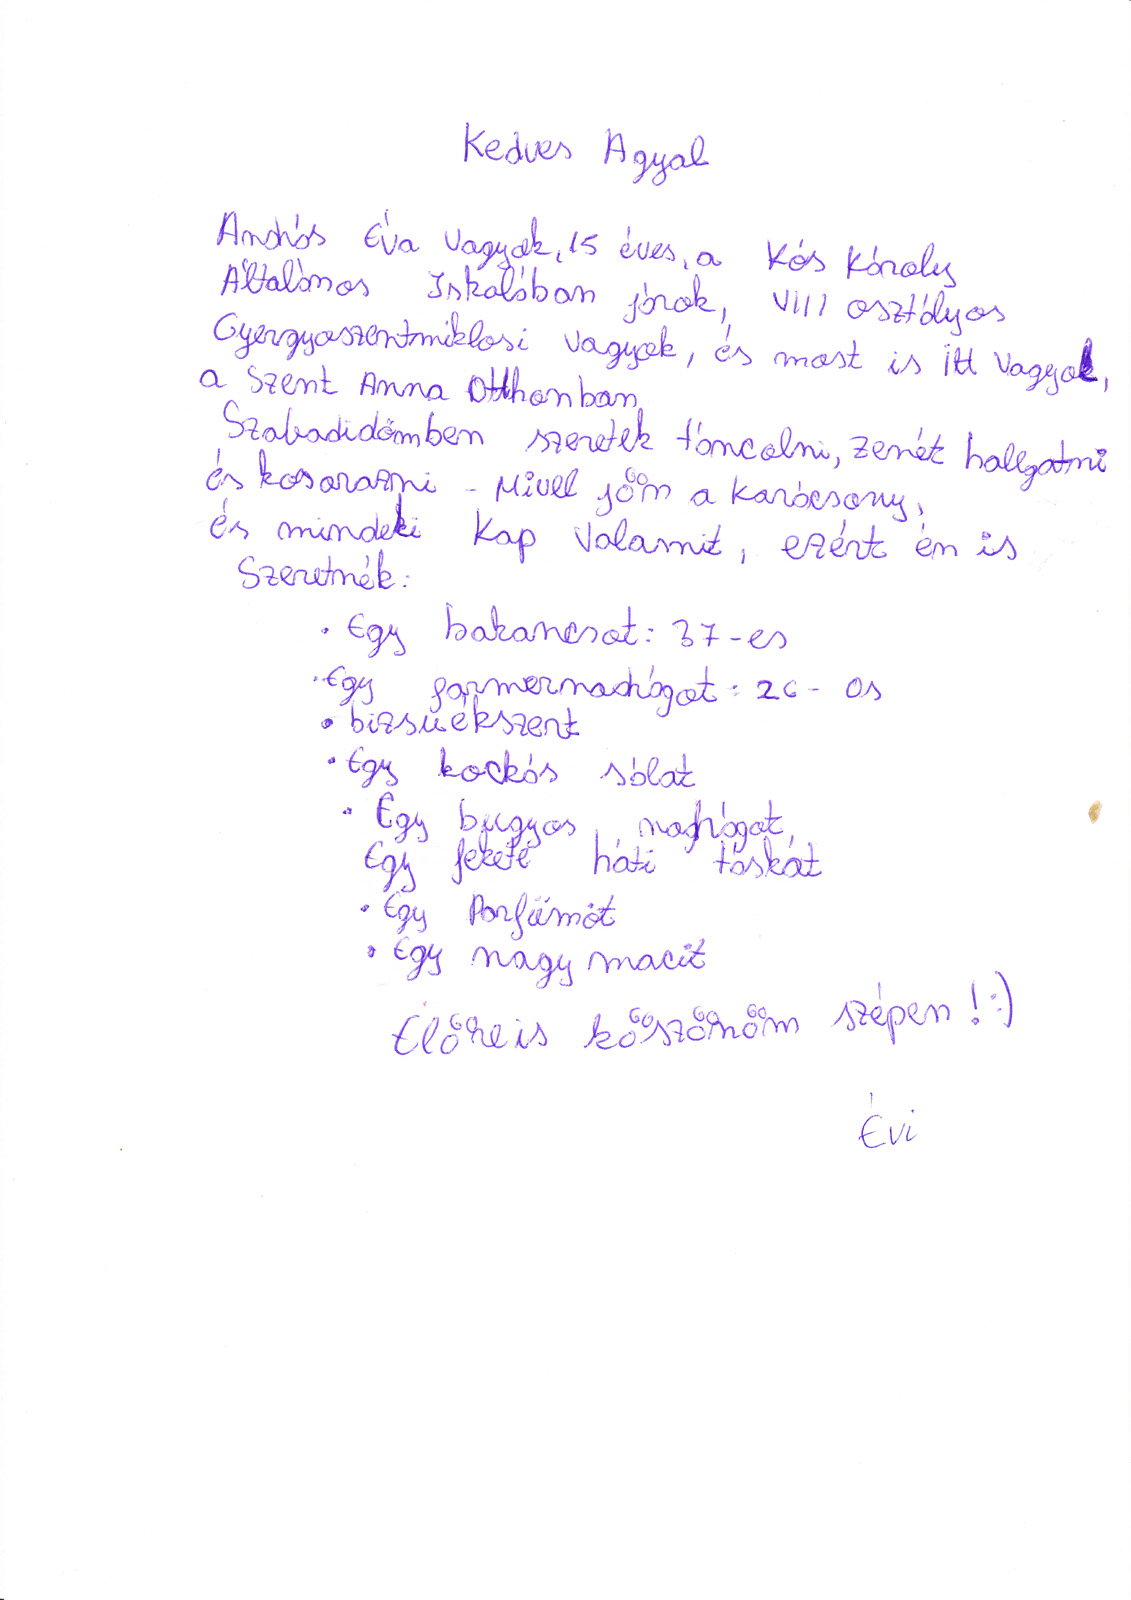 Kedves Agyal
András Éva vagyok, 15 éves, a Kós Károly
Általános Iskolában járok, VIII osztályos
Gyergyoszentmiklosi vagyok, és most is itt vagyok,
a Szent Anna Otthonban,
Szabadidőmben szeretek táncolni, zenét hallgatni
és kosarazni - Mivel jöm a karácsony,
és mindeki kap valamit, ezért én is
Szeretnék:
• Egy bakancsot: 37-es
• Egy farmernadrágot: 26-os
• bizsuékszent
• Egy kockás sálat
• Egy bugyos nadrágot,
Egy fekete háti táskát
• Egy Parfümöt
• Egy nagy macit
Előre is köszönöm szépen! :)
Évi